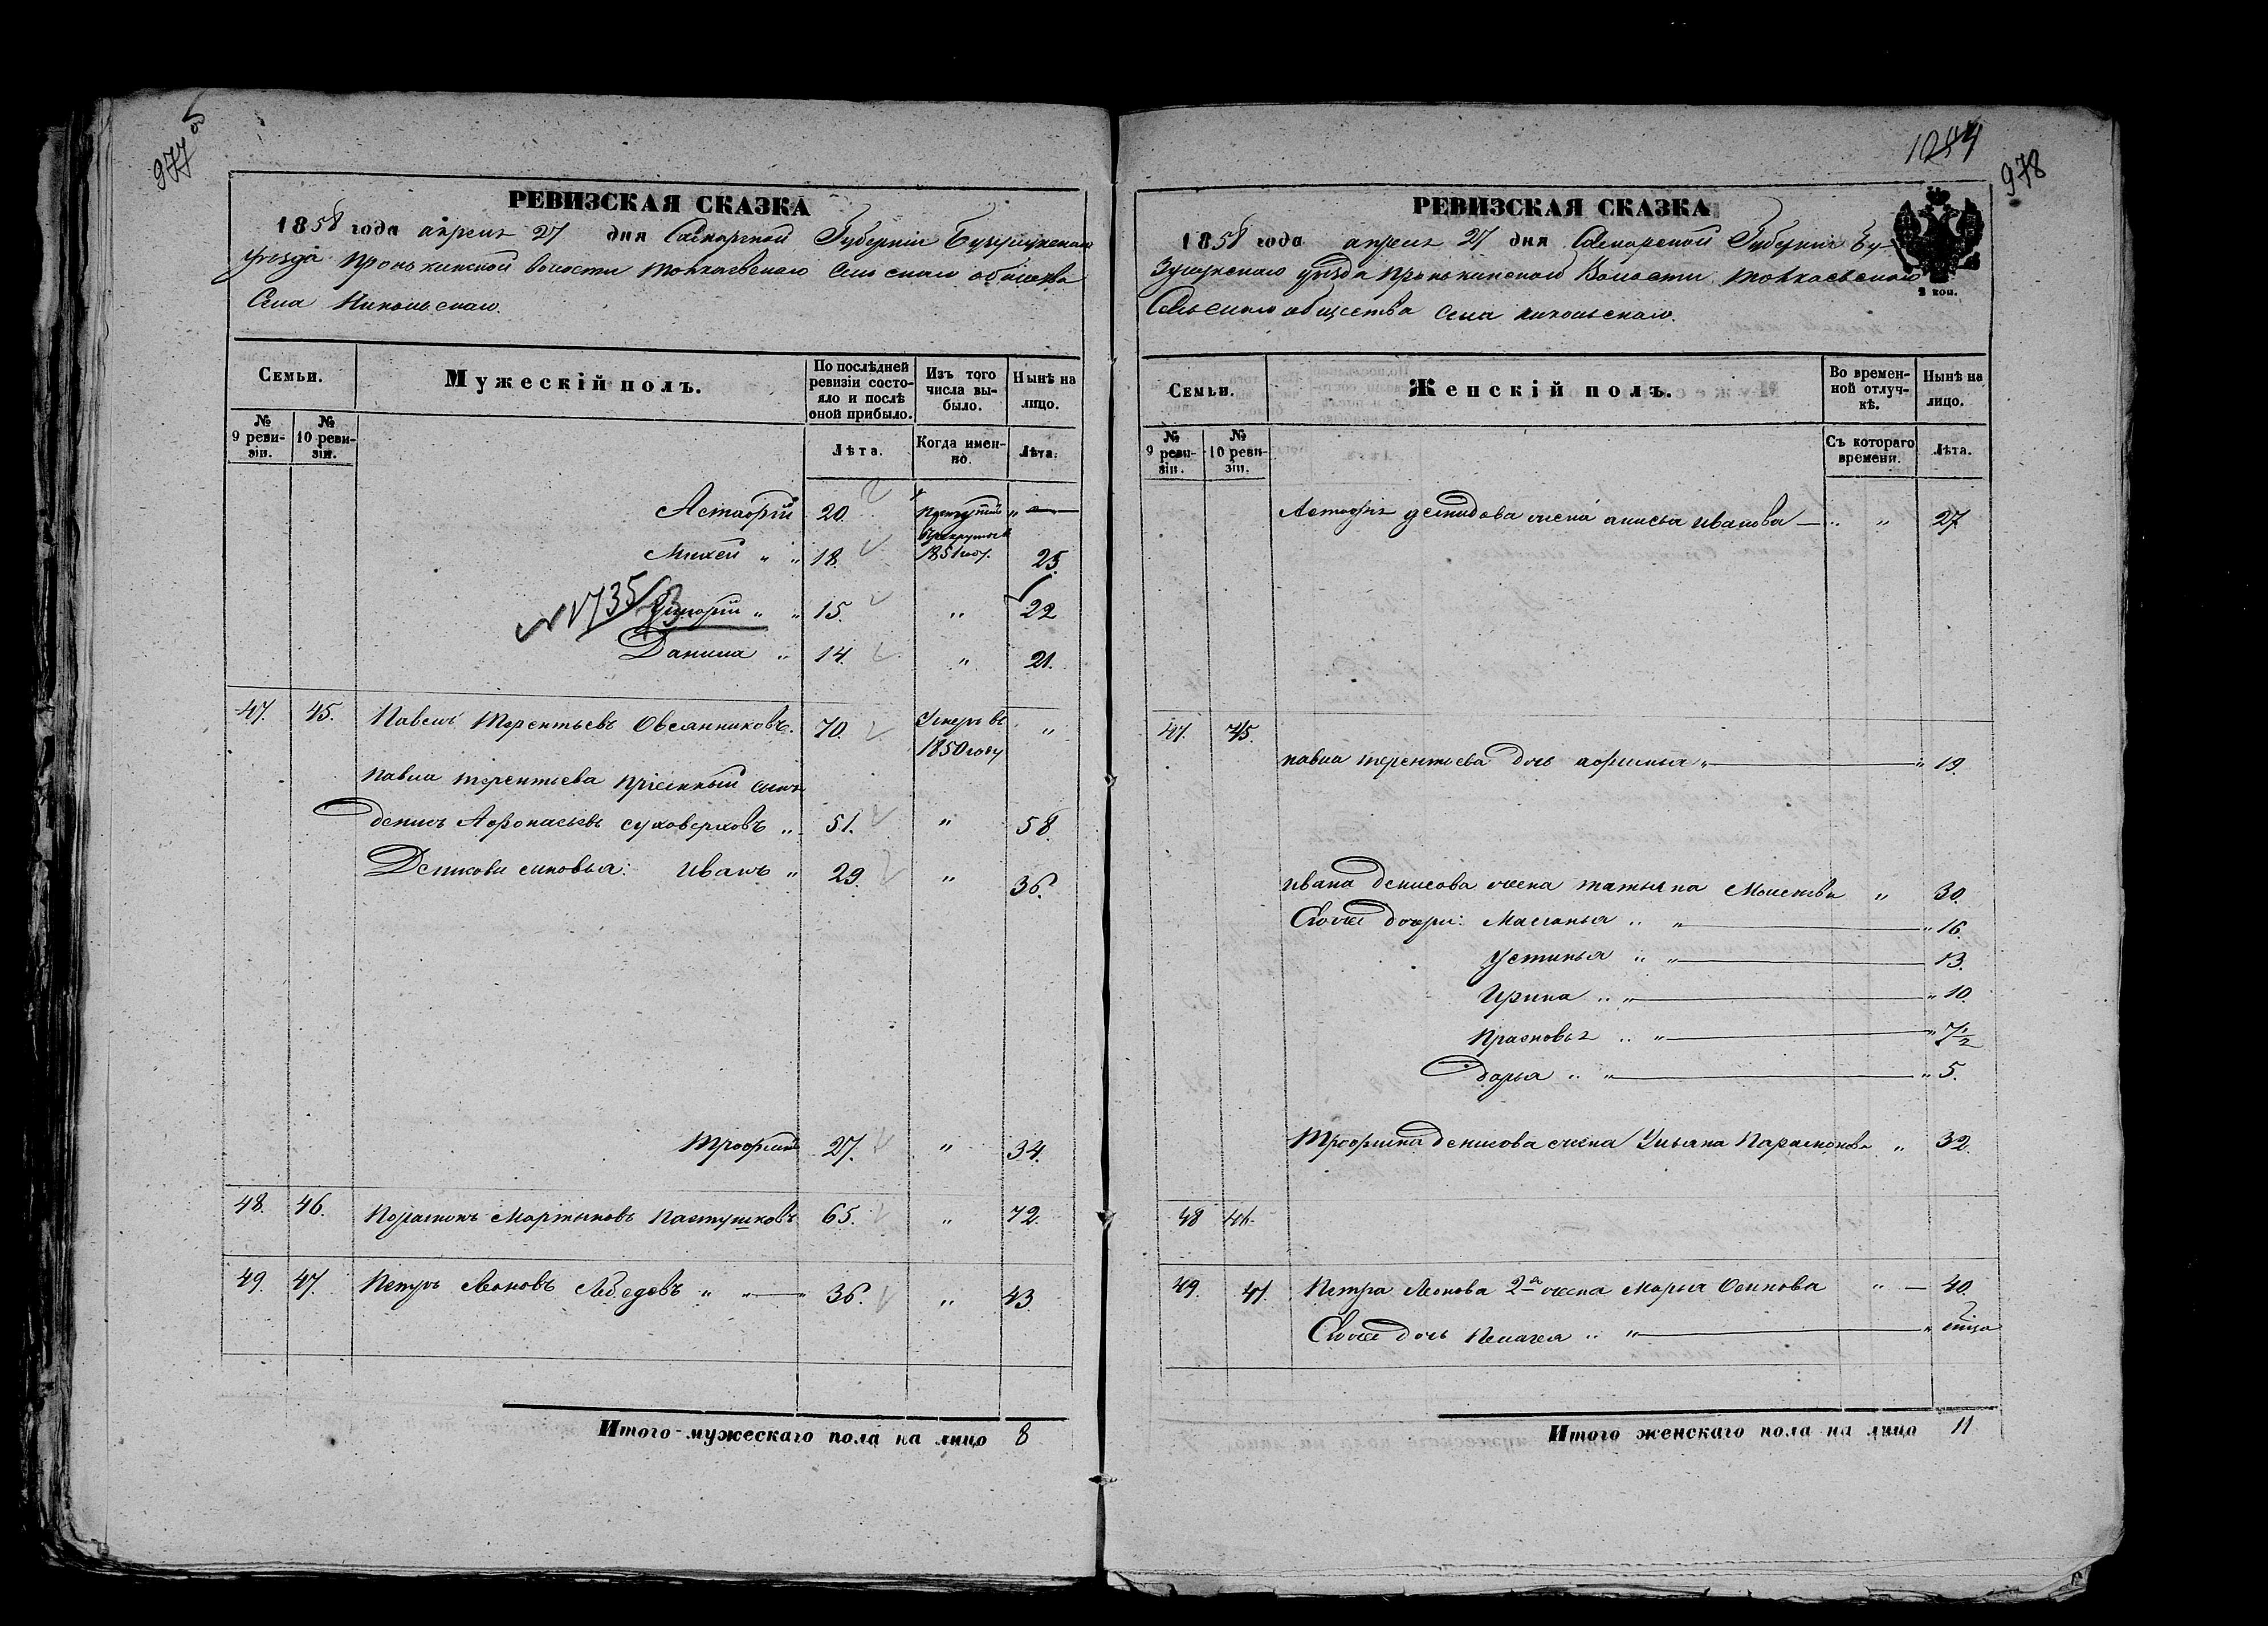 977 об
РЕВИЗСКАЯ СКАЗКА
1858 года апреля 27 дня Самарской Губернии Бузулукскаго
уезда Пронькинской волости Толкаевскаго Сельскаго общества
Села Никольскаго.
Семьи.
Мужескій полъ.
По послѣдней ревизіи состояло и послѣ оной прибыло.
Изъ того числа выбыло.
Нынѣ на лицо.
№ 9 ревизіи.
№ 10 ревизіи.
Лѣта.
Когда именно.
Лѣта.
Астафій 20
Михей " " 18. 1851 году. 25.
№ 1735
Григорій " " 15. " 22
Данила " 14. " 21.
47. 45. Павелъ Терентьевъ Овсянниковъ. 70. Умеръ въ "
1850 году
Павла Терентьева пріемный сынъ
Денисъ Афонасьевъ Суховерховъ " 51. " 58
Денисовы сыновья: Иванъ " 29. " 36.
Трофимъ 27. " 34.
48. 46. Парамонъ Мартыновъ Пастушковъ 65. " 72.
49. 47. Петръ Леоновъ Лебедевъ " " 36. " 43
Итого мужескаго пола на лицо 8
978
РЕВИЗСКАЯ СКАЗКА
1858 года апреля 27 дня Самарской Губернии Бу-
зулукскаго уезда Пронькинской Волости Толкаевскаго
Сельскаго общества села Никольскаго.
2 коп.
Семьи.
Женскій полъ.
Во временной отлучкѣ.
Нынѣ на лицо.
№ 9 ревизіи.
№ 10 ревизіи.
Съ котораго времени.
Лѣта.
Астафья Демидова жена Анисья Иванова " " 27.
47. 45.
Павла Терентьева дочь " " 19.
Ивана Денисова жена Татьяна " 30.
Ево же дочери: Маланья " " " 16.
Устинья " " " 13.
Ирина " " " 10.
Прасковья " " " 7 1/2
Дарья " " " 5.
Трофима Денисова жена Ульяна Парамонова " 32.
48 46.
49. 47. Петра Леонова 2-я жена Марья Осипова " 40.
Ево же дочь Пелагея " " "
Итого женскаго пола на лицо 11